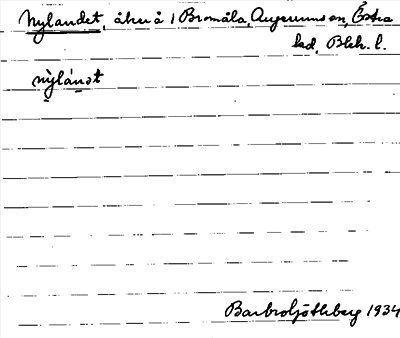 Nylandet, åker å 1 Bromåla, Augerums sn, Östra
hd, Blek. l.
nỳlánət
Barbro Ljöthberg 1934